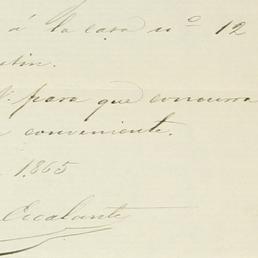 á la casa nº 12
para que concurra
conveniente.
1865
Escalante